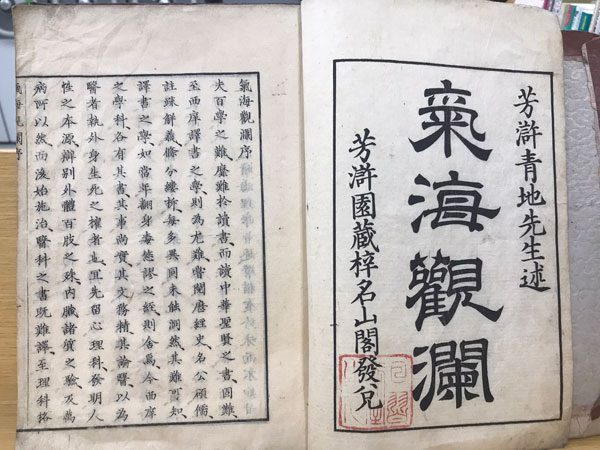 芳滸青地先生述
氣海觀瀾
芳滸園藏梓名山閣發兌
氣海觀瀾序
夫百學之難靡難於讀書而讀中華聖賢之書固難
至西庠譯書之學則為尤難嘗閱歷經史名公碩儒
註疏解義條分縷析每多異同未能洞然其難可知
譯書之學如當年翻身毒德謬之經則舍焉今西庠
之學科各有其書其事尚實其文務精其論醫以為
醫者執外身生死之權者也宜先留心理科發明人
性之本源辯別外體百肢之殊內臟諸質之驗及為
病所以然而後始施治醫科之書既難譯至理科格
氣海觀瀾序